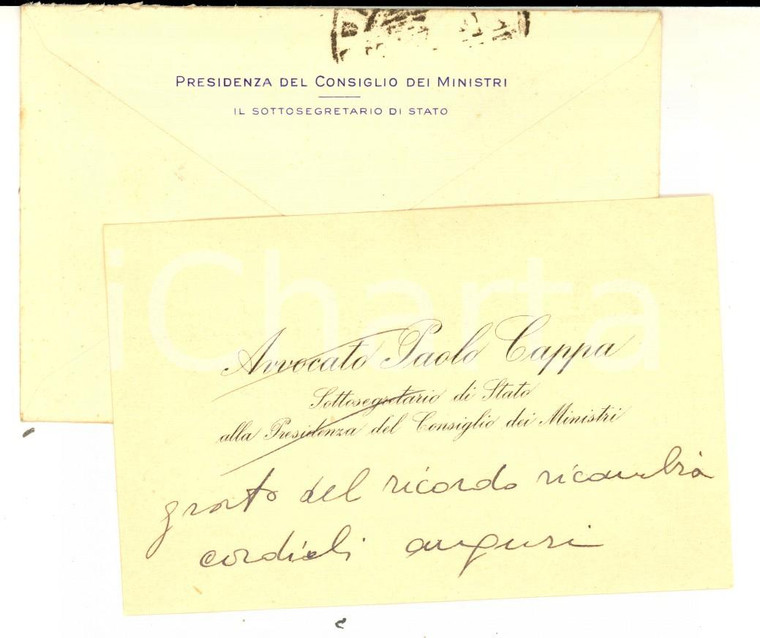 PRESIDENZA DEL CONSIGLIO DEI MINISTRI
IL SOTTOSEGRETARIO DI STATO
iCharta
Avvocato Paolo Cappa
Sottosegretario di Stato
alla Presidenza del Consiglio dei Ministri
grato del ricordo ricambia
cordiali auguri